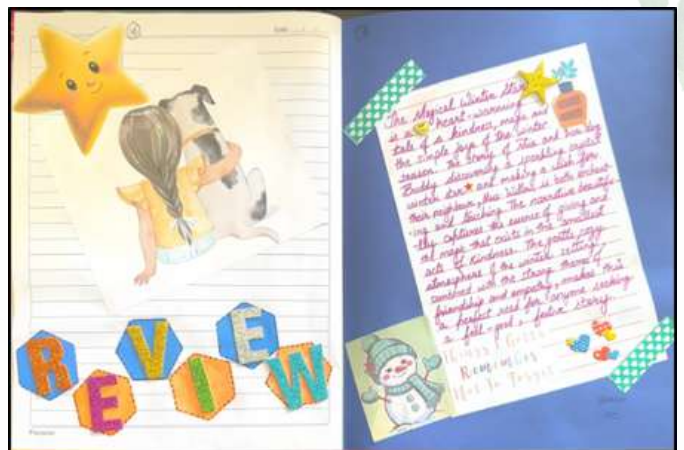 REVIEW
The Magical Winter Star
is a heart-warming
tale of kindness, magic and
the simple joys of the winter
season. The story of and her dog
Buddy discovering a sparkling
winter star and making a wish for
their neighbour, Miss is both enchant-
ing and touching. The narrative beautifu-
-lly captures the essence of giving and
magic that exists in the smallest
acts of kindness. The gentle, cozy
atmosphere of the winter setting,
combined with the strong themes of
friendship and empathy, makes this
a perfect read for anyone seeking
a feel-good, festive story.